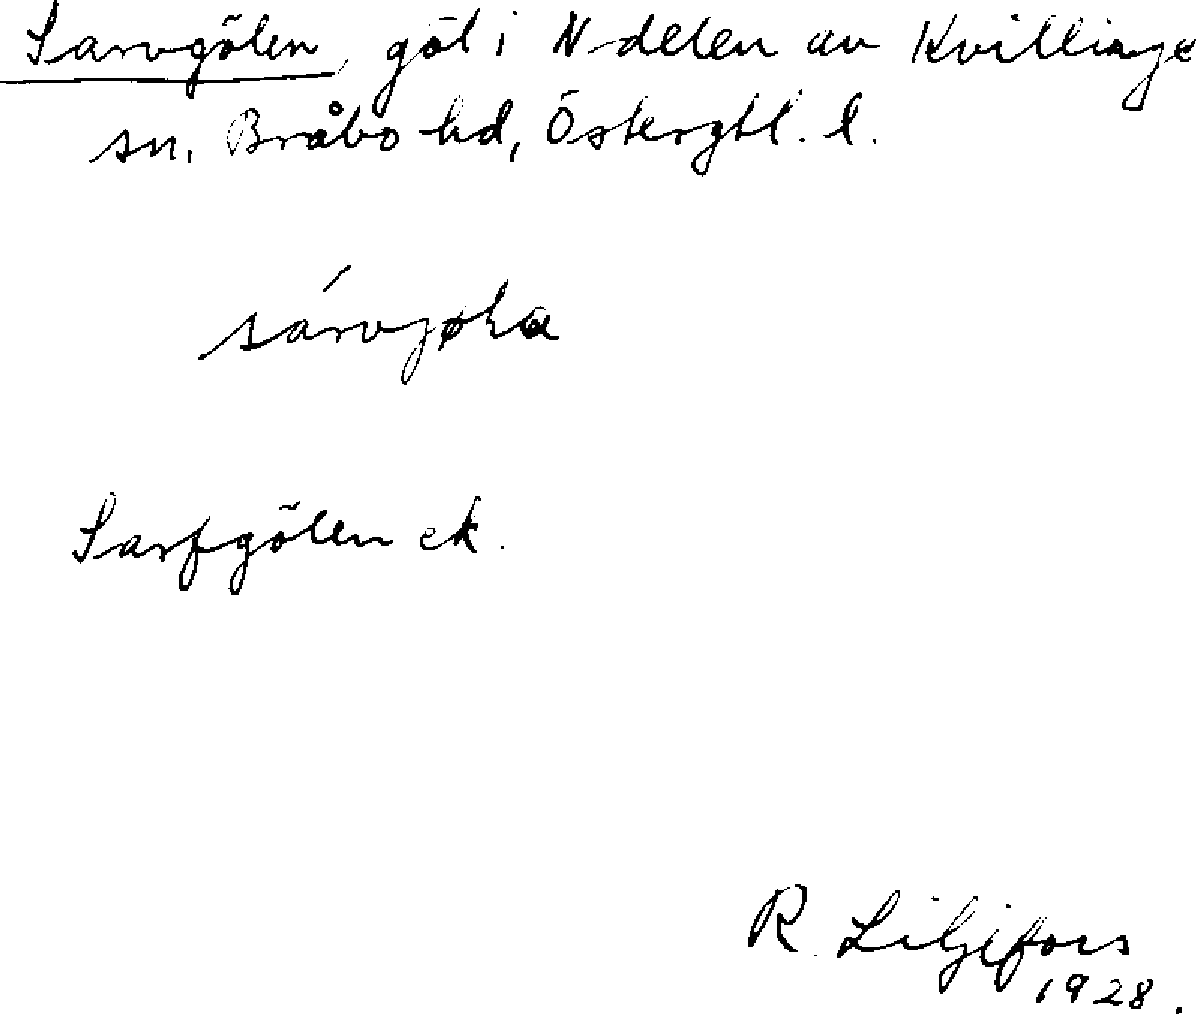 Sarvgölen, göl i N-delen av Kvillinge
sn, Bråbo hd, Östergtl. l.
Sarfgölen ek.
R. Liljefors
1928.